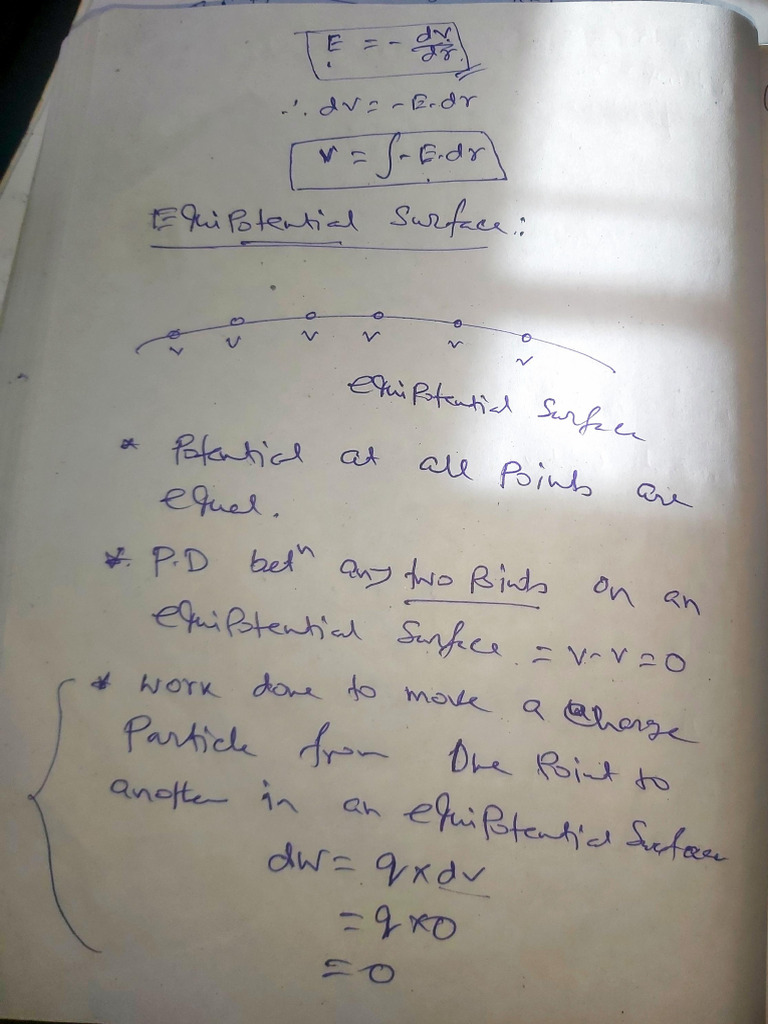 E = - dv/dr
∴ dv = - E.dr
V = ∫- E.dr
Equipotential Surface:
v v v v v v
equipotential Surface
* Potential at all points are
equal.
* P.D betⁿ any two Points on an
equipotential Surface = v-v = 0
* work done to move a charge
Particle from One Point to
another in an equipotential Surface
dw = q x dv
= q x 0
= 0